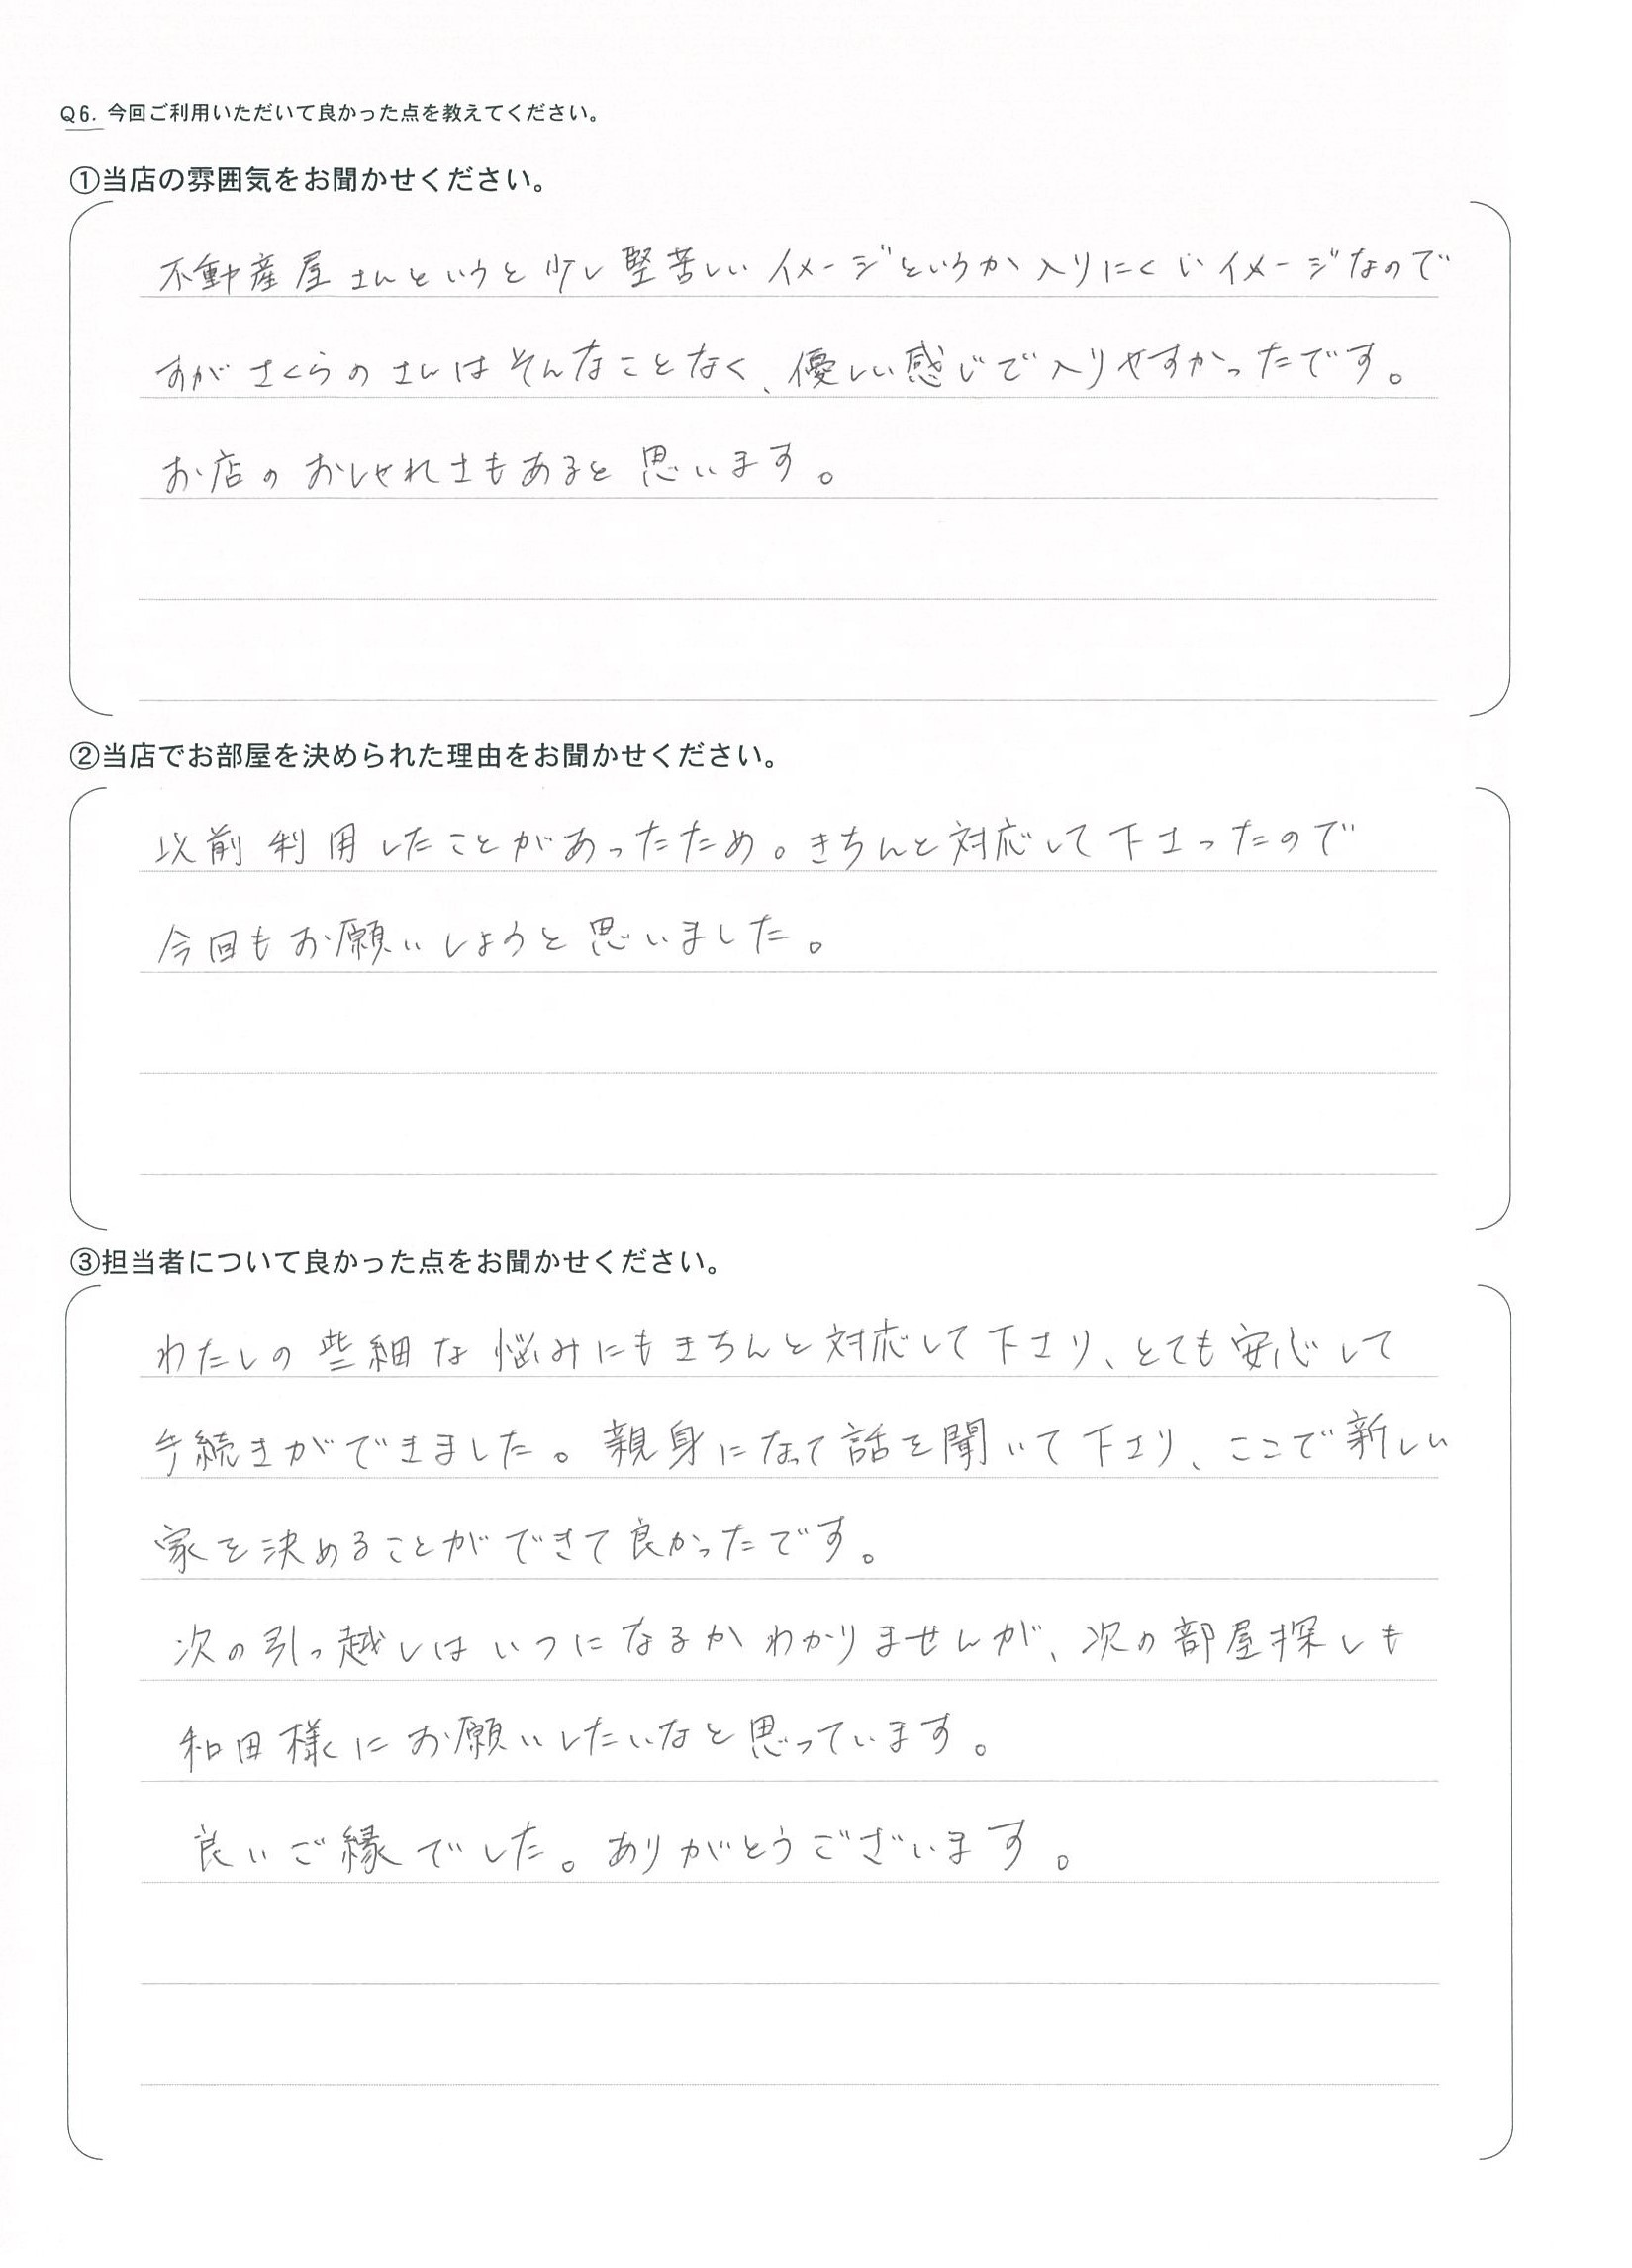 Q6. 今回ご利用いただいて良かった点を教えてください。
①当店の雰囲気をお聞かせください。
不動産屋さんというと少し堅苦しいイメージというか入りにくいイメージなので
すがさくらのさんはそんなことなく、優しい感じで入りやすかったです。
お店のおしゃれさもあると思います。
②当店でお部屋を決められた理由をお聞かせください。
以前利用したことがあったため。きちんと対応して下さったので
今回もお願いしようと思いました。
③担当者について良かった点をお聞かせください。
わたしの些細な悩みにもきちんと対応して下さり、とても安心して
手続きができました。親身になって話を聞いて下さり、ここで新しい
家を決めることができて良かったです。
次の引っ越しはいつになるかわかりませんが、次の部屋探しも
和田様にお願いしたいなと思っています。
良いご縁でした。ありがとうございます。